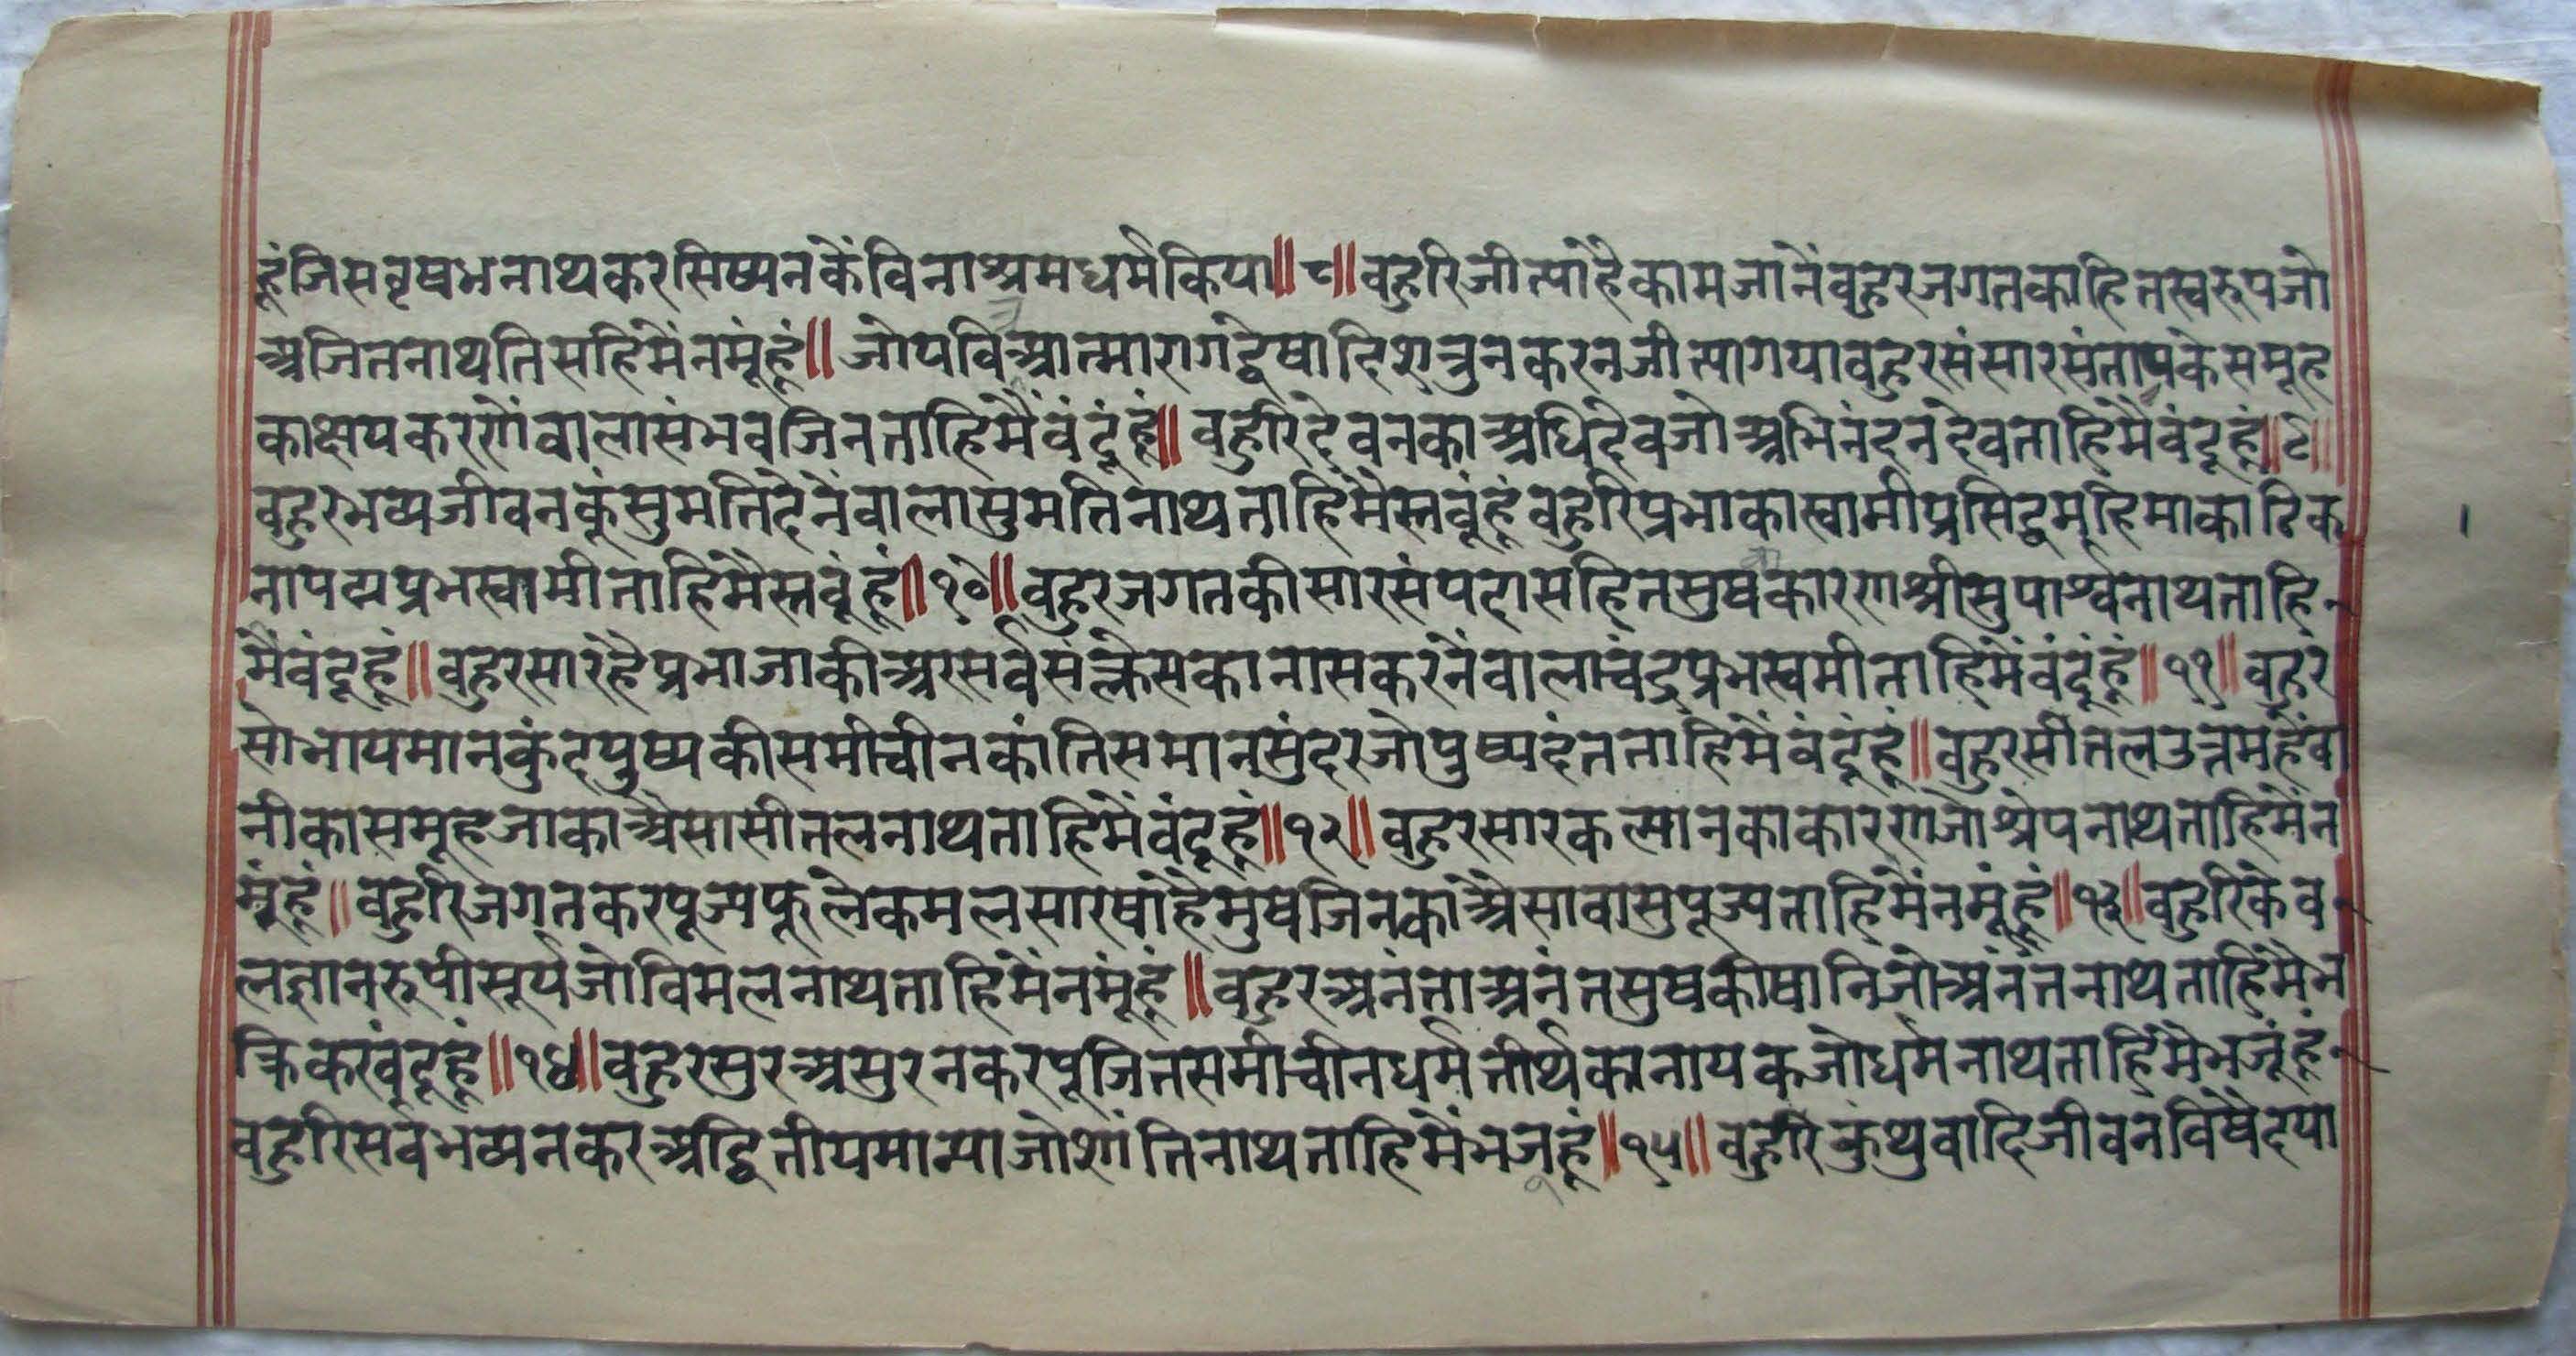 हूंजिसवृषभनाथकरसिष्यनकेंविनाश्रमधर्मकिया॥८॥वहुरिजीत्याहैकामजानैंवहुरजगतकाहितस्वरुपजो
अजितनाथतिसहिमैंनमूंहूं॥जोपविआत्मारागद्वेषादिशत्रुनकरनजीत्यागयावहुरसंसारसंतापकेसमूह
काक्षयकरणेंवालासंभवजिनताहिमैंवंदूंहूं॥वहुरिदेवनकाअधिदेवजोअभिनंदनदेवताहिमैंवंदूहूं॥९॥
वहुरभव्यजीवनकूंसुमतिदेनेंवालासुमतिनाथताहिमैंस्तवूंहूंवहुरिप्रभाकास्वामीप्रसिद्धमहिमाकाटिक
नापद्मप्रभस्वामीताहिमैंस्तवूंहूं॥१०॥वहुरजगतकीसारसंपदासहितसुषकारणश्रीसुपार्श्वनाथताहि
मैंवंदूहूं॥वहुरसारहैप्रभाजाकीअरसर्वसंक्लेसकानासकरनेंवालाचंद्रप्रभस्वमीताहिमैंवंदूंहूं॥११॥वहुर
सोभायमानकुंदपुष्पकीसमीचीनकांतिसमानसुंदरजोपुष्पदंतताहिमैंवंदूंहूं॥वहुरसीतलउत्तमहैंवा
नीकासमूहजाकाअैसासीतलनाथताहिमैंवंदूहूं॥१२॥वहुरसारकल्यानकाकारणजोश्रेयनाथताहिमैंन
मूंहूं॥वहुरिजगतकरपूज्यफूलेकमलसारषाहैमुषजिनकाअैसावासुपूज्यताहिमैंनमूंहूं॥१३॥वहुरिकेव
लज्ञानरुपीसूर्यजोविमलनाथताहिमैंनमूंहूं॥वहुरअनंताअनंतसुषकीषानिजोअनंतनाथताहिमैंभ
क्तिकरवंदूहूं॥१४॥वहुरसुरअसुरनकरपूजितसमीचीनधर्मतीर्थकानायकजोधर्मनाथताहिमैंभजूंहूं
वहुरिसर्वभव्यनकरअद्वितीयमान्याजोशांतिनाथताहिमैंभजूहूं॥१५॥वहुरिकुंथुवादिजीवनविषैंदया